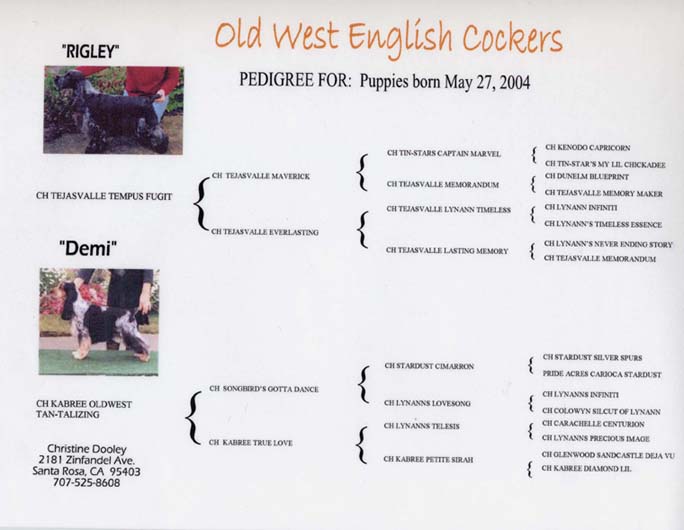 Old West English Cockers
"RIGLEY"
PEDIGREE FOR: Puppies born May 27, 2004
CH TEJASVALLE TEMPUS FUGIT
CH TEJASVALLE MAVERICK
CH TEJASVALLE EVERLASTING
CH TIN-STARS CAPTAIN MARVEL
CH TEJASVALLE MEMORANDUM
CH TEJASVALLE LYNANN TIMELESS
CH TEJASVALLE LASTING MEMORY
CH KENODO CAPRICORN
CH TIN-STAR'S MY LIL CHICKADEE
CH DUNELM BLUEPRINT
CH TEJASVALLE MEMORY MAKER
CH LYNANN INFINITI
CH LYNANN'S TIMELESS ESSENCE
CH LYNANN'S NEVER ENDING STORY
CH TEJASVALLE MEMORANDUM
"Demi"
CH KABREE OLDWEST
TAN-TALIZING
CH SONGBIRD'S GOTTA DANCE
CH KABREE TRUE LOVE
CH STARDUST CIMARRON
CH LYNANNS LOVESONG
CH LYNANNS TELESIS
CH KABREE PETITE SIRAH
CH STARDUST SILVER SPURS
PRIDE ACRES CARIOCA STARDUST
CH LYNANNS INFINITI
CH COLOWYN SILCUT OF LYNANN
CH CARACHELLE CENTURION
CH LYNANNS PRECIOUS IMAGE
CH GLENWOOD SANDCASTLE DEJA VU
CH KABREE DIAMOND LIL
Christine Dooley
2181 Zinfandel Ave.
Santa Rosa, CA 95403
707-525-8608